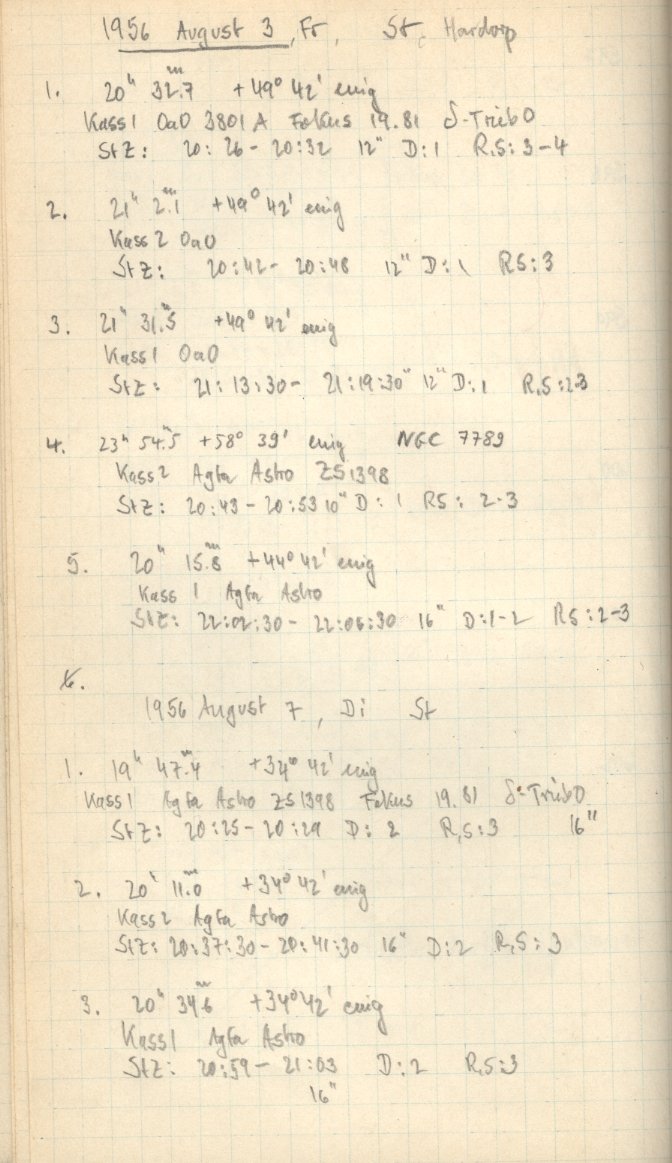 1956 August 3, Fr, St, Hardorp
1. 20ʰ 32ᵐ.7 +49° 42' enig
Kass 1 OaO 3801 A Fokus 19.81 δ-Trieb 0
StZ: 20:26 - 20:32 12" D:1 R,S: 3-4
2. 21ʰ 2ᵐ.1 +49° 42' enig
Kass 2 OaO
StZ: 20:42 - 20:48 12" D:1 RS:3
3. 21ʰ 31ᵐ.5 +49° 42' enig
Kass 1 OaO
StZ: 21:13:30 - 21:19:30 12" D:1 R,S:2-3
4. 23ʰ 54ᵐ.5 +58° 39' enig NGC 7789
Kass 2 Agfa Astro ZS 1398
StZ: 20:43 - 20:53 10" D:1 RS: 2-3
5. 20ʰ 15ᵐ.8 +44° 42' enig
Kass 1 Agfa Astro
StZ: 22:02:30 - 22:06:30 16" D:1-2 RS:2-3
6.
1956 August 7, Di St
1. 19ʰ 47ᵐ.4 +34° 42' enig
Kass 1 Agfa Astro ZS 1398 Fokus 19.81 δ-Trieb 0
StZ: 20:25 - 20:29 D: 2 R,S:3 16"
2. 20ʰ 11ᵐ.0 +34° 42' enig
Kass 2 Agfa Astro
StZ: 20:37:30 - 20:41:30 16" D:2 R,S:3
3. 20ʰ 34ᵐ.6 +34° 42' enig
Kass 1 Agfa Astro
StZ: 20:59 - 21:03 D:2 R,S:3
16"